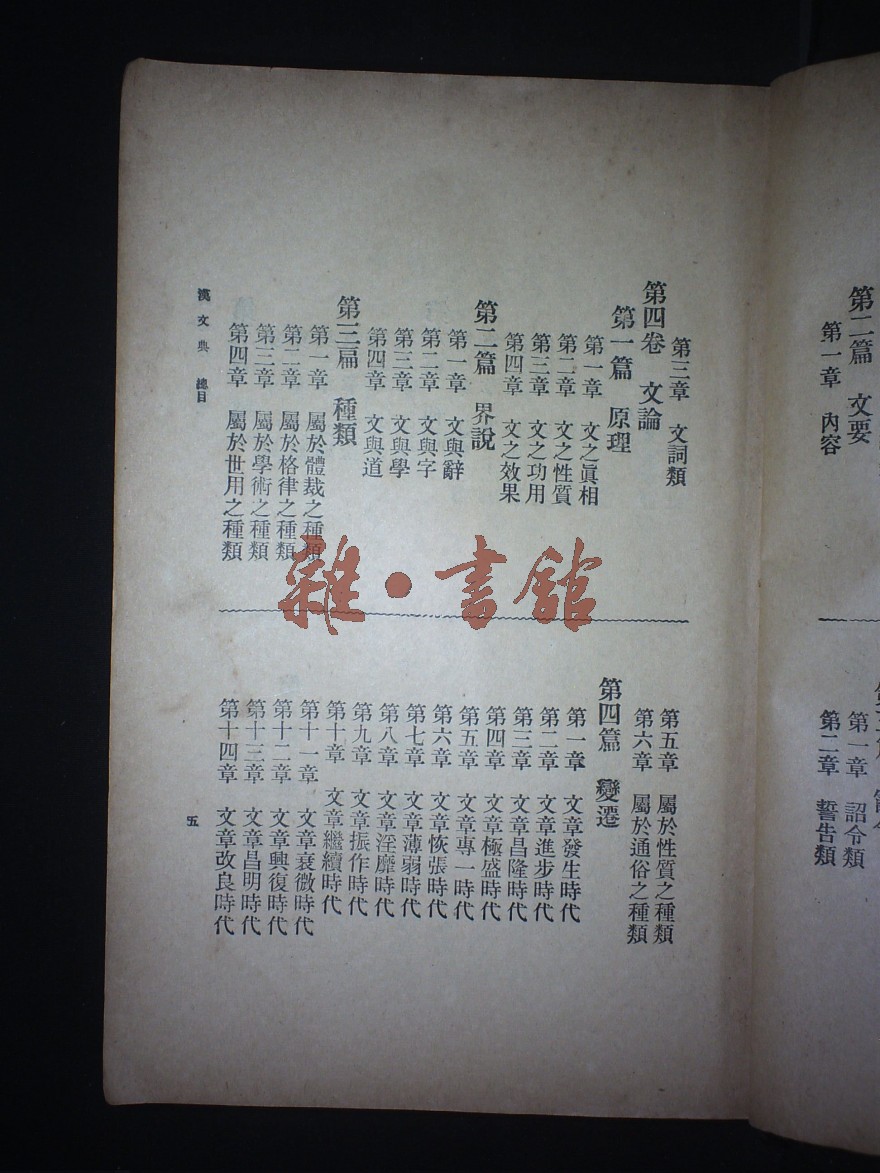 第二篇 文要
第一章 內容
第一章 詔令類
第二章 誓告類
第三章 文詞類
第四卷 文論
第一篇 原理
第一章 文之眞相
第二章 文之性質
第三章 文之功用
第四章 文之效果
第二篇 界說
第一章 文與辭
第二章 文與字
第三章 文與學
第四章 文與道
第三篇 種類
第一章 屬於體裁之種類
第二章 屬於格律之種類
第三章 屬於學術之種類
第四章 屬於世用之種類
第五章 屬於性質之種類
第六章 屬於通俗之種類
第四篇 變遷
第一章 文章發生時代
第二章 文章進步時代
第三章 文章昌隆時代
第四章 文章極盛時代
第五章 文章專一時代
第六章 文章恢張時代
第七章 文章薄弱時代
第八章 文章淫靡時代
第九章 文章振作時代
第十章 文章繼續時代
第十一章 文章衰微時代
第十二章 文章興復時代
第十三章 文章昌明時代
第十四章 文章改良時代
漢文典 總目
五
雜·書館